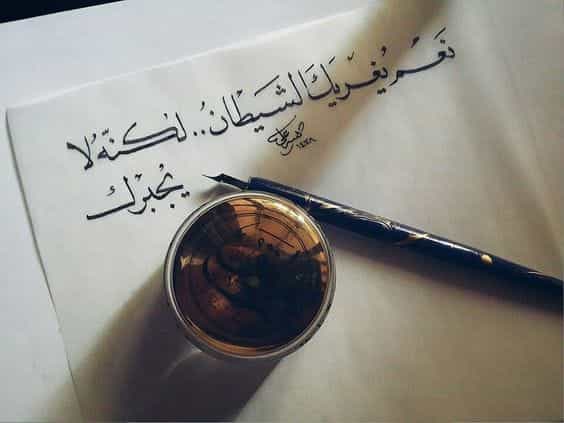 نَعَم يُغريكَ الشَيطانُ.. لٰكنّهُ لا
يُجبرك
١٤٣٨